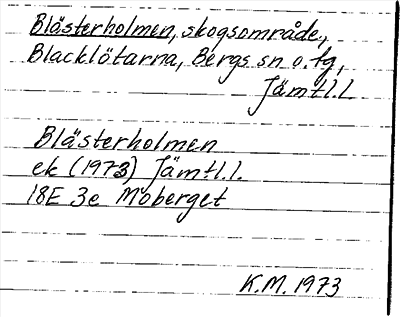 Blästerholmen, skogsområde,
Blacklötarna, Bergs sn o. tg,
Jämtl.l
Blästerholmen
ek (1973) Jämtl.l.
18E 3e Moberget
K.M. 1973